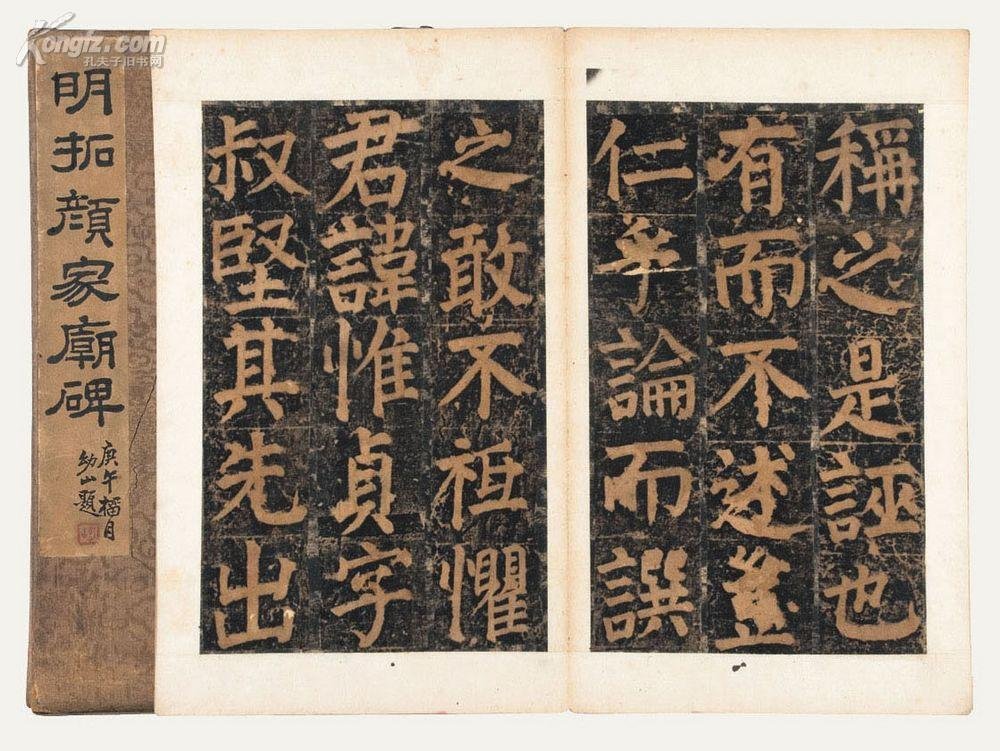 Kongfz.com
孔夫子旧书网
明拓顏家廟碑
庚午榴月
幼山題
稱之是誣也
有而不述豈
仁乎論而譔
之敢不祗懼
君諱惟貞字
叔堅其先出